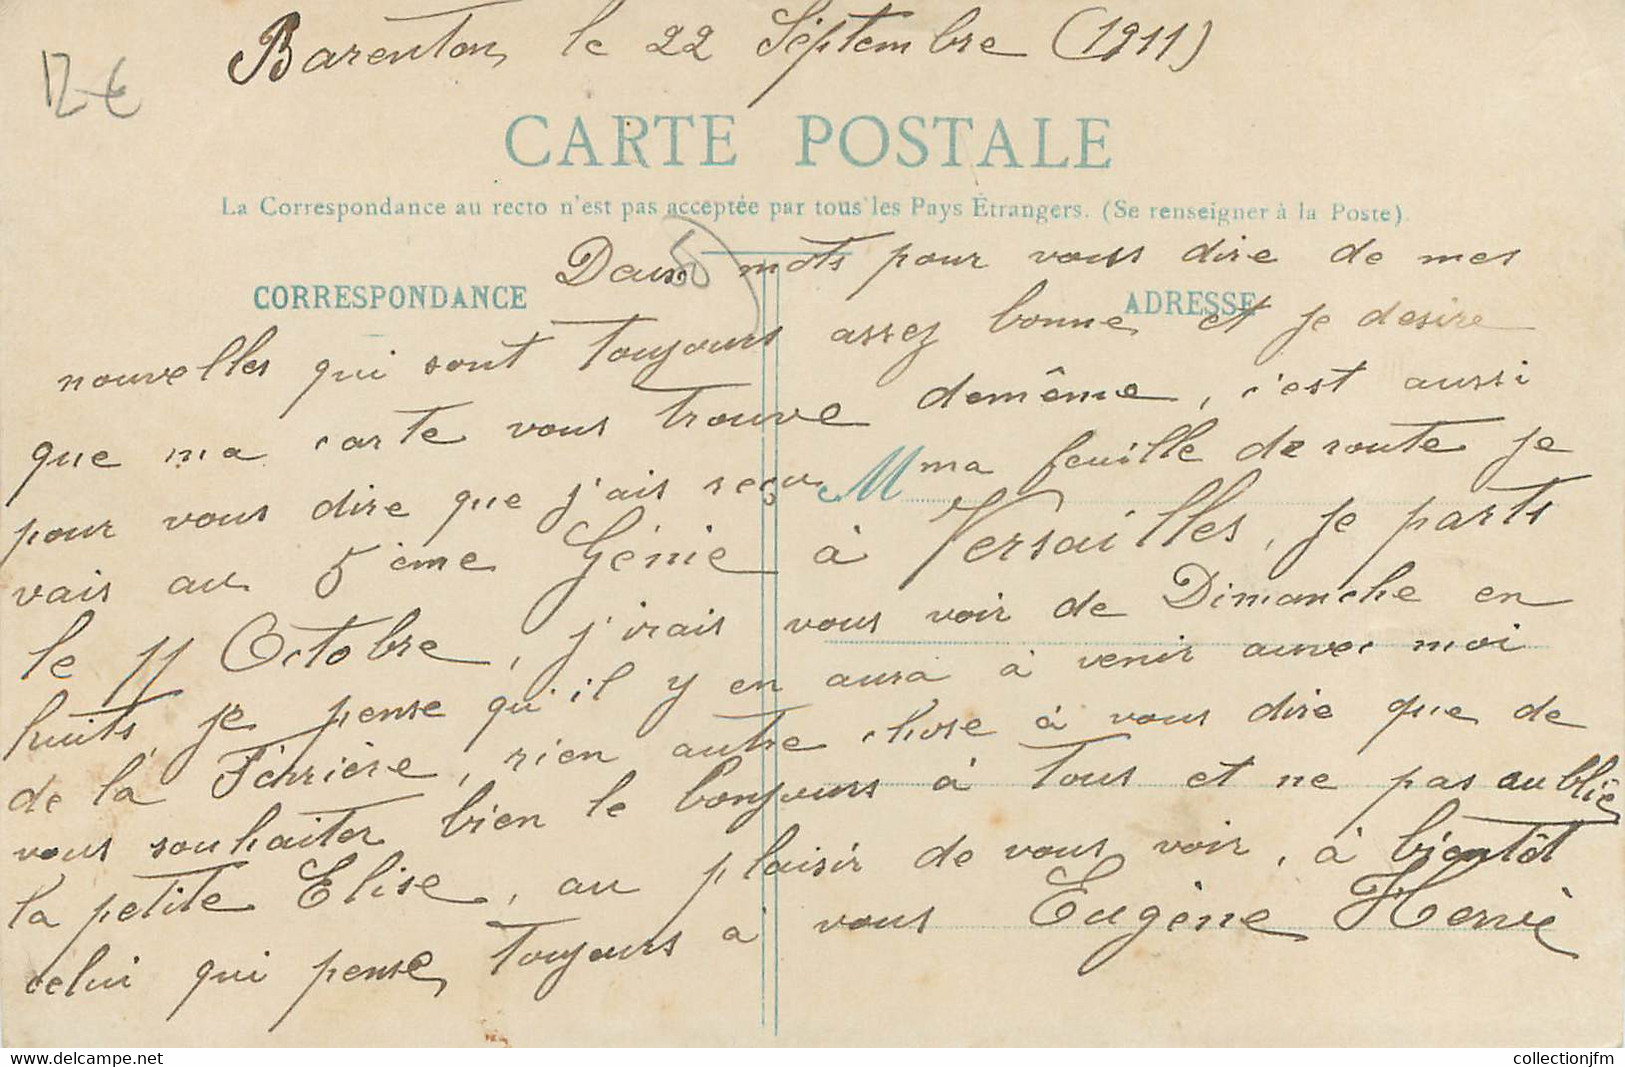 Barenton, le 22 Septembre (1911)
12 €
CARTE POSTALE
La Correspondance au recto n'est pas acceptée par tous les Pays Étrangers. (Se renseigner à la Poste).
5)
CORRESPONDANCE
ADRESSE
M
Deux mots pour vous dire de mes
nouvelles qui sont toujours assez bonne et je desire
que ma carte vous trouve demême, c'est aussi
pour vous dire que j'ais reçu ma feuille de route je
vais au 5ème Génie à Versailles, je parts
le 11 Octobre, j'irais vous voir de Dimanche en
huits, je pense qu'il y en aura à venir auvec moi
de la Férrière, rien autre chose à vous dire que de
vous souhaiter bien le bonjours à tous et ne pas oublié
la petite Elise, au plaisir de vous voir, à bientôt
celui qui pense toujours à vous Eugène Hervé
delcampe.net
collectionjfm